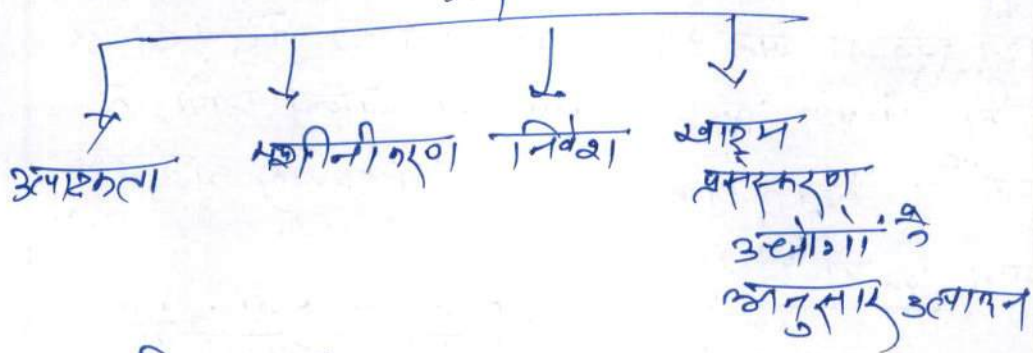 उत्पादकता
मशीनीकरण
निवेश
खाद्य
प्रसंस्करण
उद्योगों के
अनुसार उत्पादन